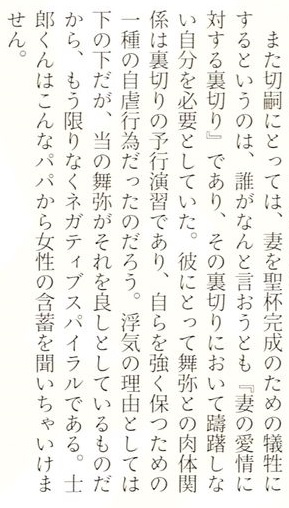 また切嗣にとっては、妻を聖杯完成のための犠牲に
するというのは、誰がなんと言おうとも『妻の愛情に
対する裏切り』であり、その裏切りにおいて躊躇しな
い自分を必要としていた。彼にとって舞弥との肉体関
係は裏切りの予行演習であり、自らを強く保つための
一種の自虐行為だったのだろう。浮気の理由としては
下の下だが、当の舞弥がそれを良しとしているものだ
から、もう限りなくネガティブスパイラルである。士
郎くんはこんなパパから女性の含蓄を聞いちゃいけま
せん。